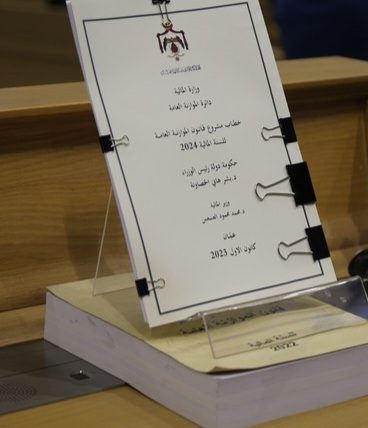 وزارة المالية
دائرة الموازنة العامة
خطاب مشروع قانون الموازنة العامة
للسنة المالية 2024
حكومة دولة رئيس الوزراء
د. بشر هاني الخصاونة
وزير المالية
د. محمد محمود العسعس
عمان
كانون الاول 2023
قانون الموازنة العامة
للسنة المالية
2022